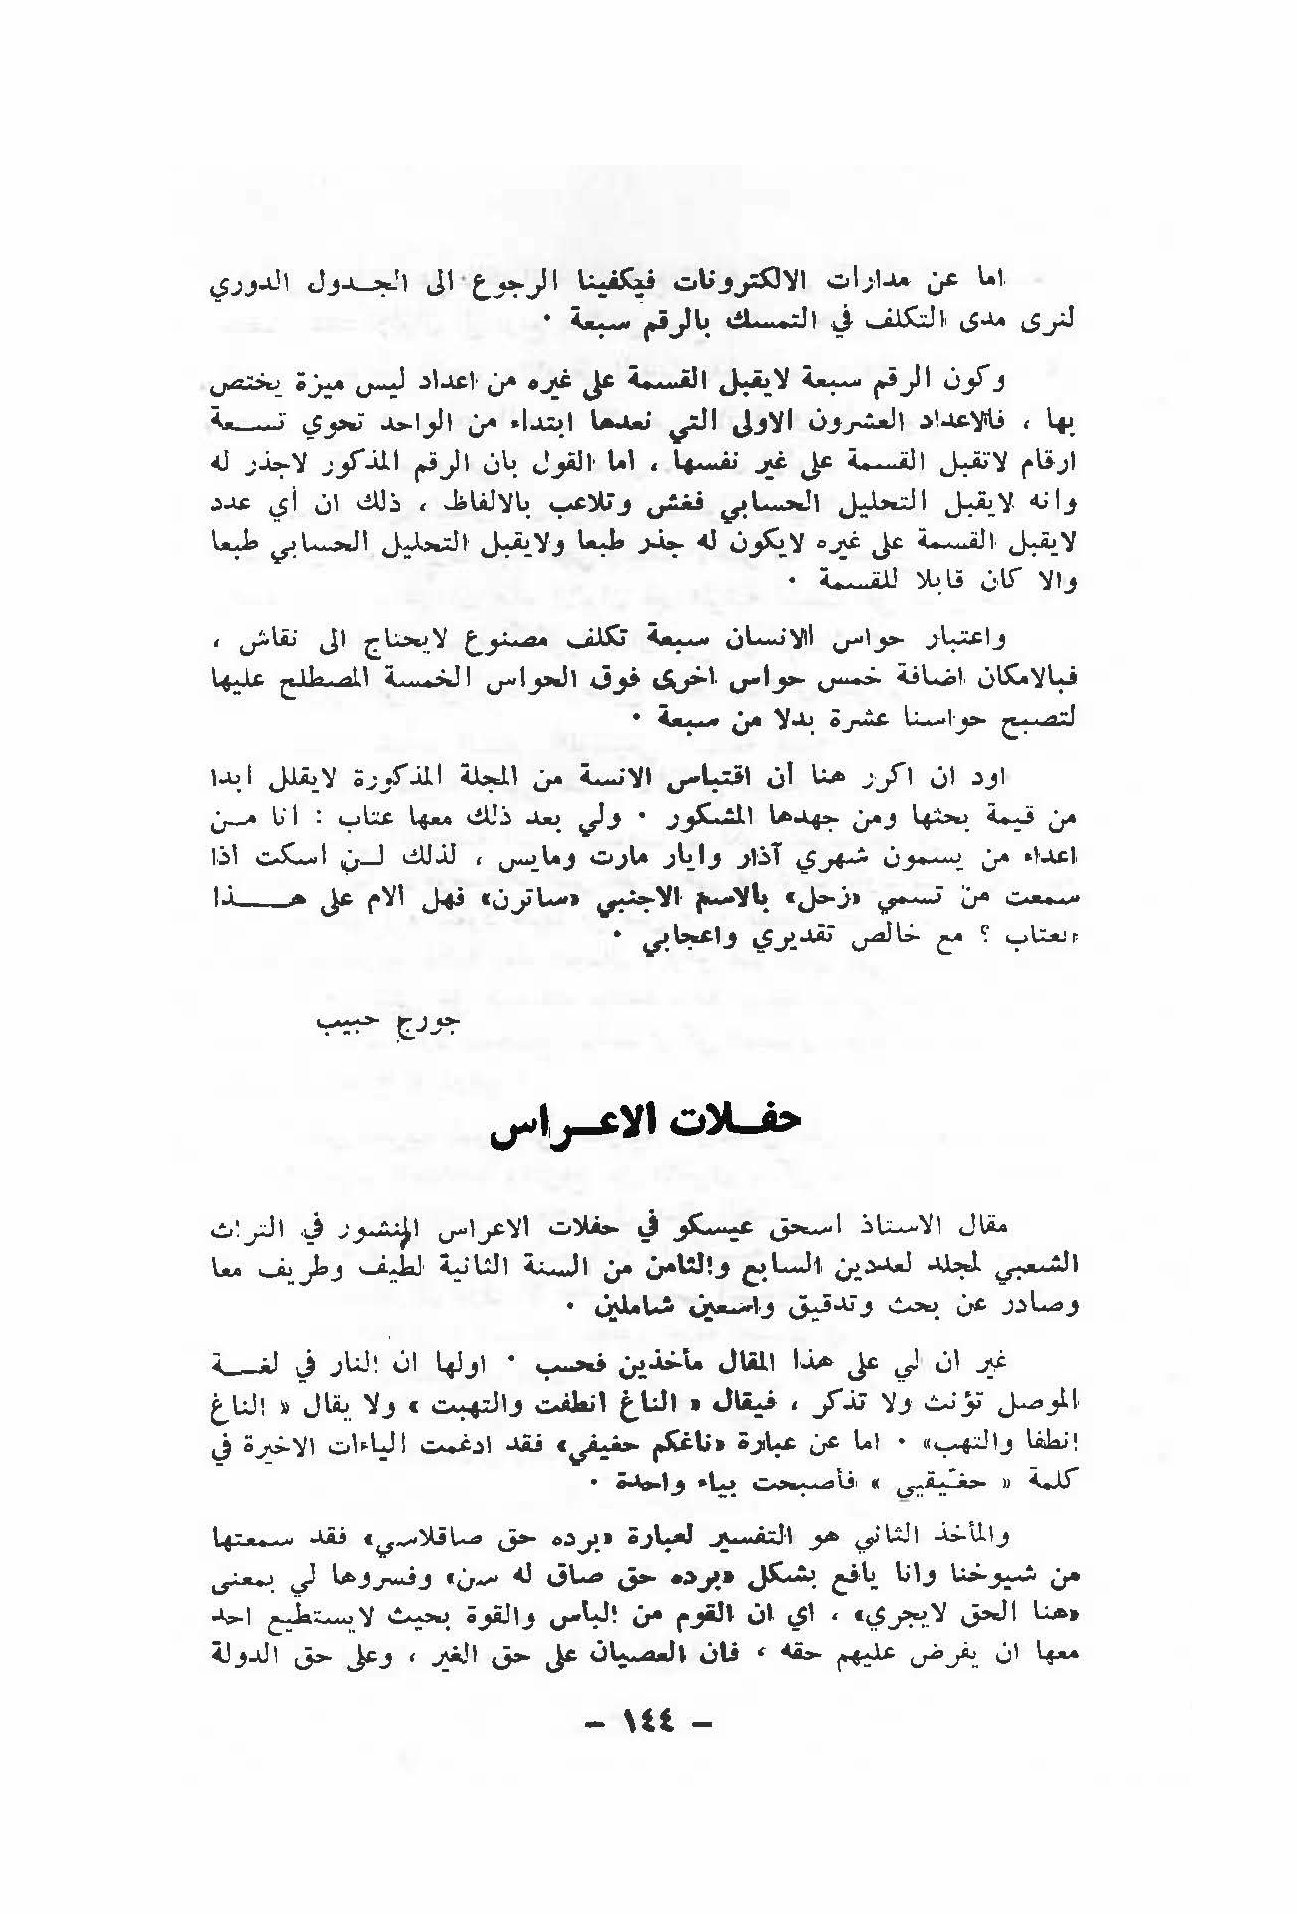 اما عن مدارات الالكترونات فيكفينا الرجوع الى الجدول الدوري
لنرى مدى التكلف في التمسك بالرقم سبعة ٠
وكون الرقم سبعة لايقبل القسمة على غيره من اعداد ليس ميزة يختص
بها ، فالاعداد العشرون الاولى التي نعدها ابتداء من الواحد تحوي تسعة
ارقام لاتقبل القسمة على غير نفسها ، اما القول بان الرقم المذكور لاجذر له
وانه لايقبل التحليل الحسابي فغش وتلاعب بالالفاظ ، ذلك ان أي عدد
لايقبل القسمة على غيره لايكون له جذر طبعا ولايقبل التحليل الحسابي طبعا
والا كان قابلا للقسمة ٠
واعتبار حواس الانسان سبعة تكلف مصنوع لايحتاج الى نقاش ،
فبالامكان اضافة خمس حواس اخرى فوق الحواس الخمسة المصطلح عليها
لتصبح حواسنا عشرة بدلا من سبعة ٠
اود ان اكرر هنا ان اقتباس الانسة من المجلة المذكورة لايقلل ابدا
من قيمة بحثها ومن جهدها المشكور ٠ ولي بعد ذلك معها عتاب : انا من
اعداء من يسمون شهري آذار وايار مارت ومايس ، لذلك لن اسكت اذا
سمعت من تسمي «زحل» بالاسم الاجنبي «ساترن» فهل الام على هذا
العتاب ؟ مع خالص تقديري واعجابي ٠
جورج حبيب
حفلات الاعراس
مقال الاستاذ اسحق عيسكو في حفلات الاعراس المنشور في التراث
الشعبي لمجلد لعددين السابع والثامن من السنة الثانية لطيف وظريف معا
وصادر عن بحث وتدقيق واسعين شاملين ٠
غير ان لي على هذا المقال مأخذين فحسب ٠ اولها ان النار في لغة
الموصل تؤنث ولا تذكر ، فيقال « الناغ انطفت والتهبت » ولا يقال « الناغ
انطفا والتهب» ٠ اما عن عبارة «ناغكم حفيفي» فقد ادغمت الياءات الاخيرة في
كلمة « حغّيقيي » فأصبحت بياء واحدة ٠
والمأخذ الثاني هو التفسير لعبارة «برده حق صاقلاسي» فقد سمعتها
من شيوخنا وانا يافع بشكل «برده حق صاق له سن» وفسروها لي بمعنى
«هنا الحق لايجري» ، اي ان القوم من البأس والقوة بحيث لايستطيع احد
معها ان يفرض عليهم حقه ، فان العصيان على حق الغير ، وعلى حق الدولة
– ١٤٤ –